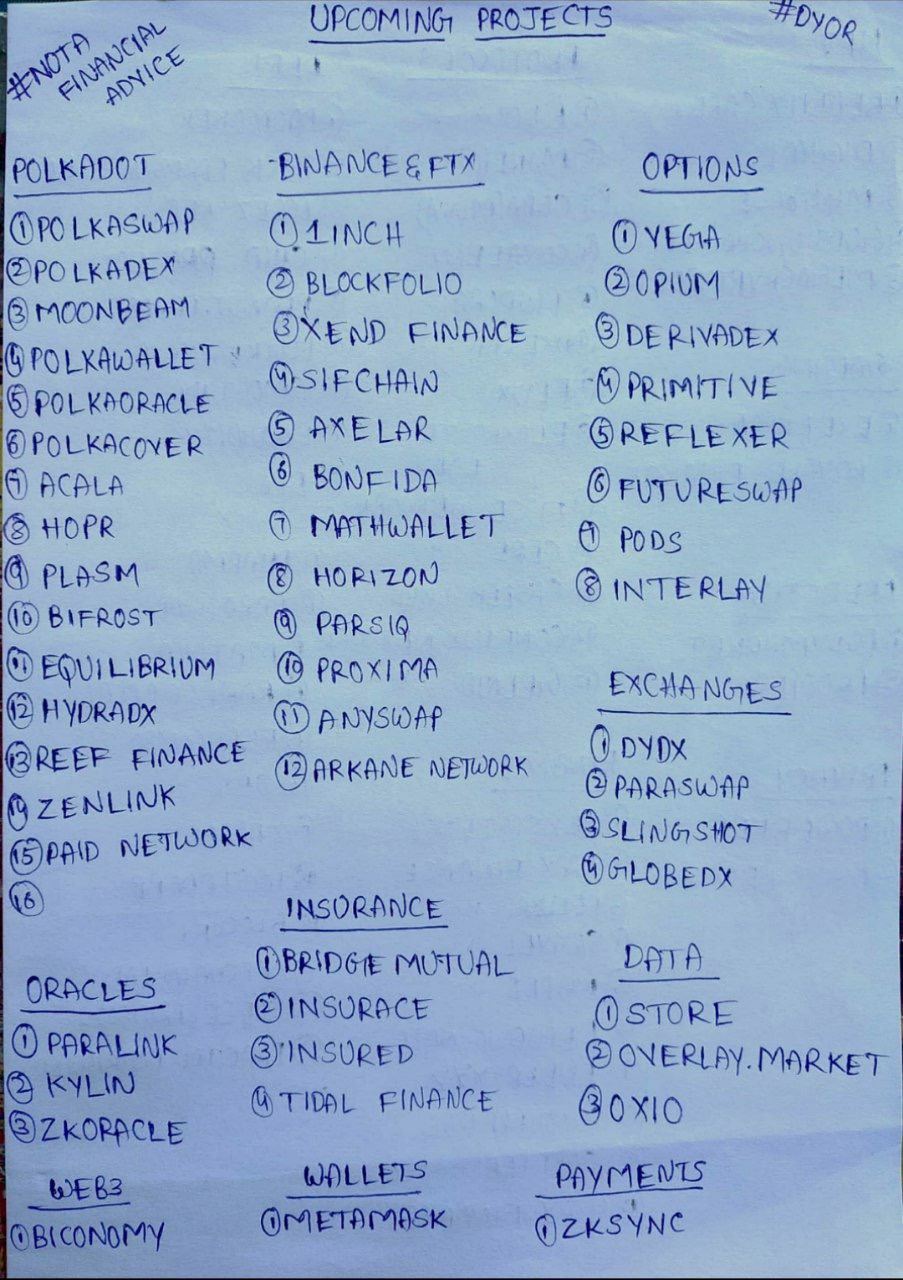 UPCOMING PROJECTS
#NOTA
FINANCIAL
ADVICE
#DYOR
POLKADOT
① POLKASWAP
② POLKADEX
③ MOONBEAM
④ POLKAWALLET
⑤ POLKAORACLE
⑥ POLKACOVER
⑦ ACALA
⑧ HOPR
⑨ PLASM
⑩ BIFROST
⑪ EQUILIBRIUM
⑫ HYDRADX
⑬ REEF FINANCE
⑭ ZENLINK
⑮ PAID NETWORK
⑯
BINANCE & FTX
① 1INCH
② BLOCKFOLIO
③ XEND FINANCE
④ SIFCHAIN
⑤ AXELAR
⑥ BONFIDA
⑦ MATHWALLET
⑧ HORIZON
⑨ PARSIQ
⑩ PROXIMA
⑪ ANYSWAP
⑫ ARKANE NETWORK
OPTIONS
① VEGA
② OPIUM
③ DERIVADEX
④ PRIMITIVE
⑤ REFLEXER
⑥ FUTURESWAP
⑦ PODS
⑧ INTERLAY
EXCHANGES
① DYDX
② PARASWAP
③ SLINGSHOT
④ GLOBEDX
ORACLES
① PARALINK
② KYLIN
③ ZKORACLE
INSURANCE
① BRIDGE MUTUAL
② INSURACE
③ INSURED
④ TIDAL FINANCE
DATA
① STORE
② OVERLAY.MARKET
③ 0XIO
WEB3
① BICONOMY
WALLETS
① METAMASK
PAYMENTS
① ZKSYNC